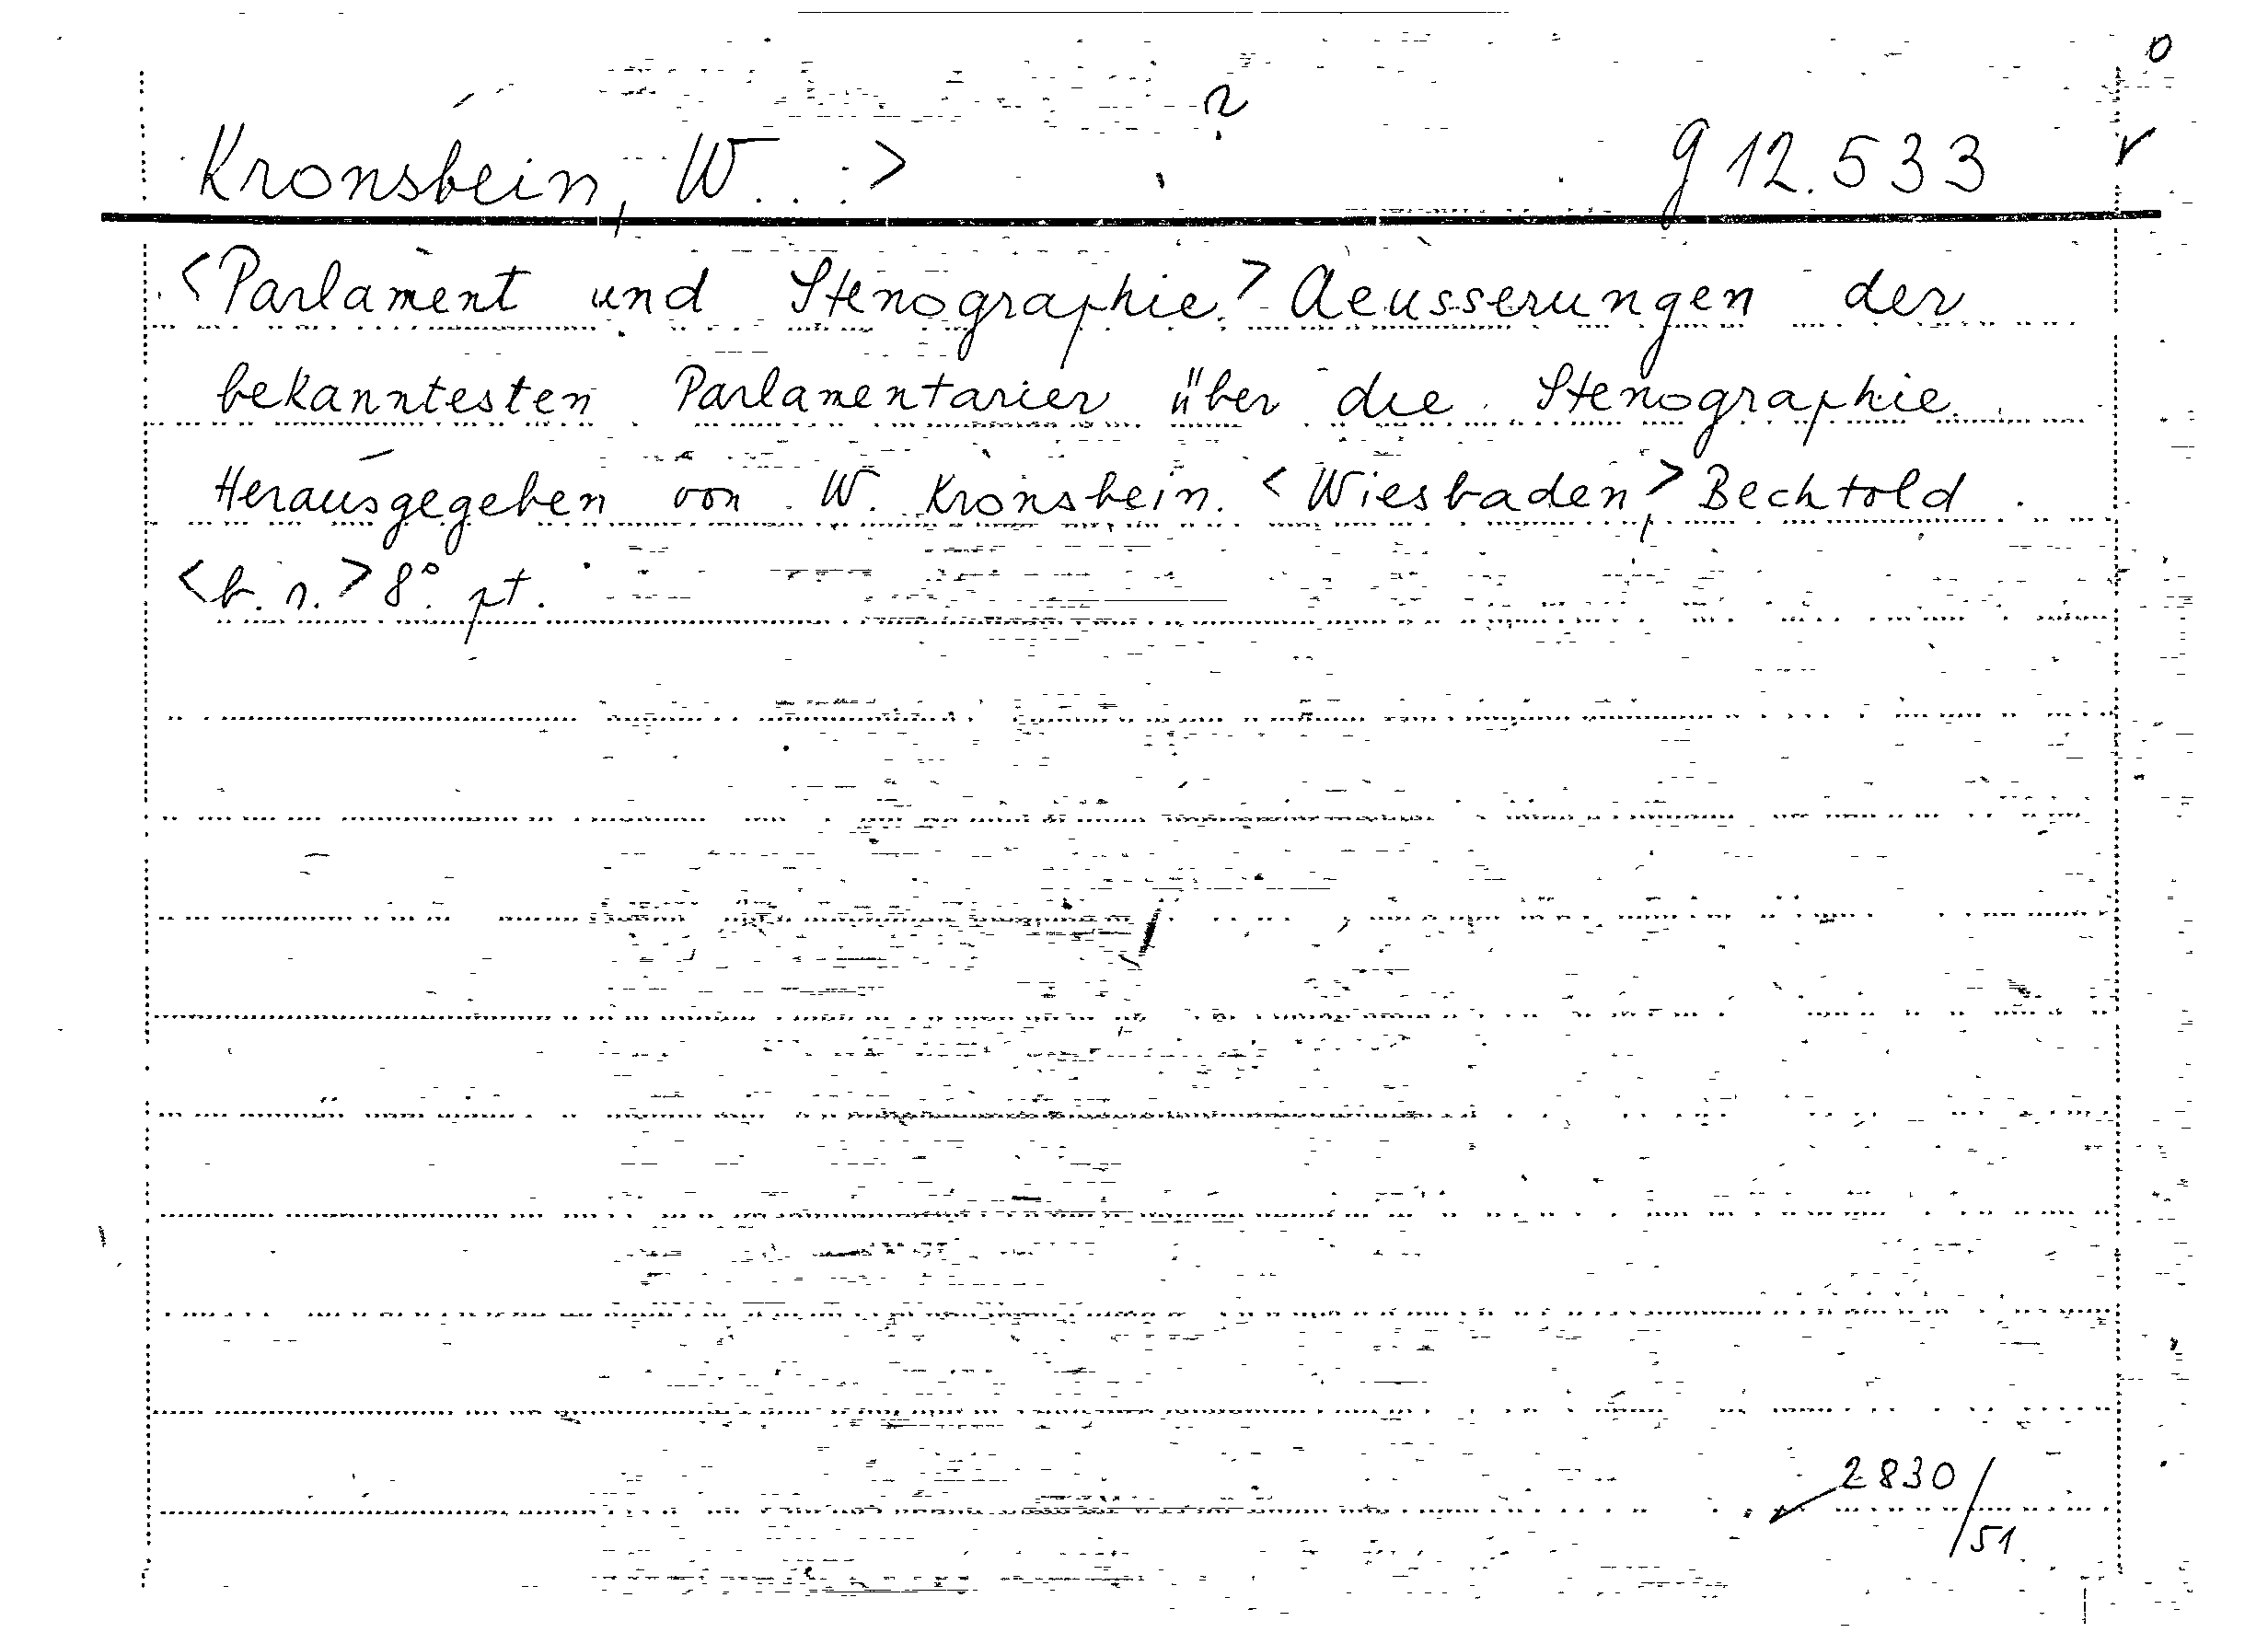 o
?
Kronsbein, W. . . > g 12.533
<Parlament und Stenographie.> Aeusserungen der
bekanntesten Parlamentarier über die Stenographie.
Herausgegeben von W. Kronsbein. <Wiesbaden,> Bechtold
8°. pt.
2830/51